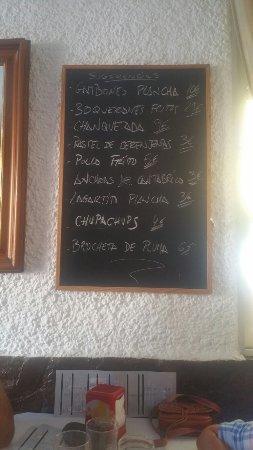 SUGERENCIAS
- GAMBONES PLANCHA 10€
- BOQUERONES FRITOS
CHANQUETADA
- PASTEL DE BERENJENAS 3€
- POLLO FRITO 5€
ANCHOAS DE CANTABRICO 3€
- LAGARTITO PLANCHA
- CHUPACHUPS
- BROCHETA DE PLUMA